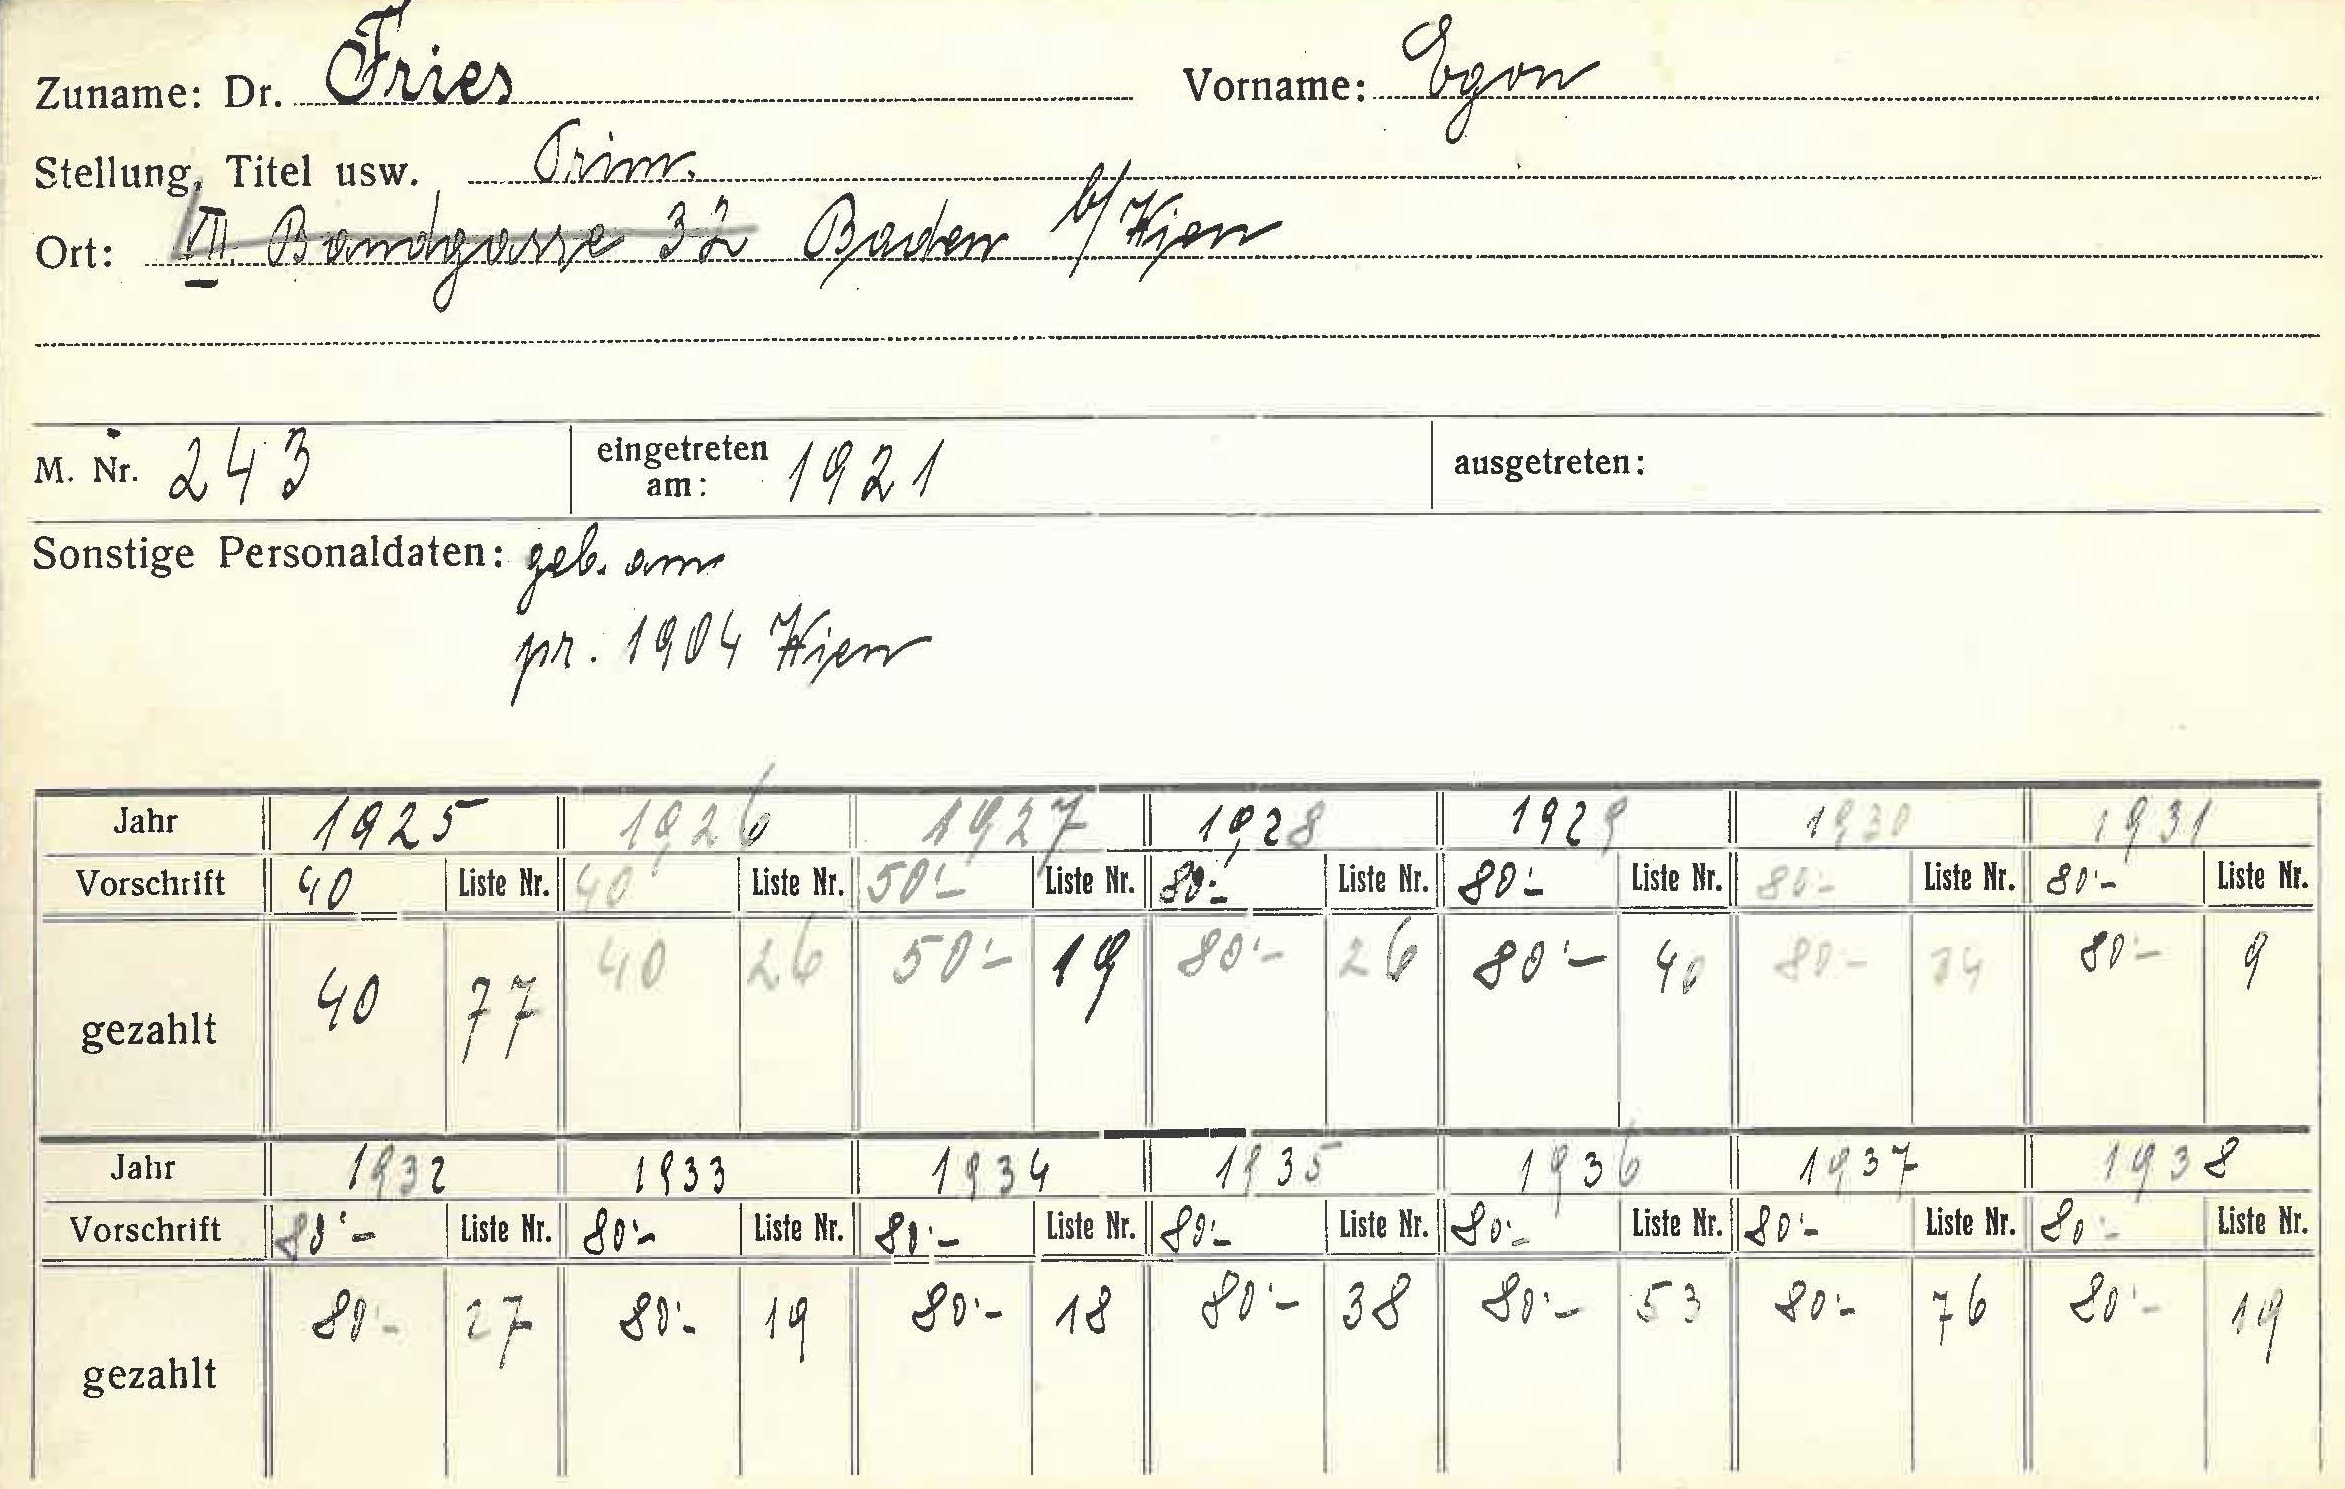 Zuname: Dr. Fries Vorname: Egon
Stellung, Titel usw. Prim.
Ort: VII. Bandgasse 32 Baden b/Wien
M. Nr. 243 eingetreten am: 1921 ausgetreten:
Sonstige Personaldaten: geb. am
pr. 1904 Wien
Jahr 1925 1926 1927 1928 1929 1930 1931
Vorschrift 40 Liste Nr. 40 Liste Nr. 50'- Liste Nr. 80'- Liste Nr. 80'- Liste Nr. 80'- Liste Nr. 80'- Liste Nr.
gezahlt 40 77 40 26 50'- 19 80'- 26 80'- 40 80'- 80'- 9
Jahr 1932 1933 1934 1935 1936 1937 1938
Vorschrift 80'- Liste Nr. 80'- Liste Nr. 80'- Liste Nr. 80'- Liste Nr. 80'- Liste Nr. 80'- Liste Nr. 80'- Liste Nr.
gezahlt 80'- 27 80'- 19 80'- 18 80'- 38 80'- 53 80'- 76 80'- 19